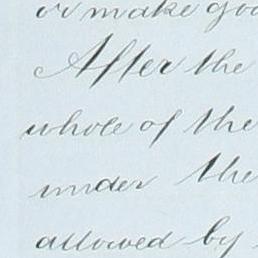 or make goo
After the
whole of the
under the
allowed by